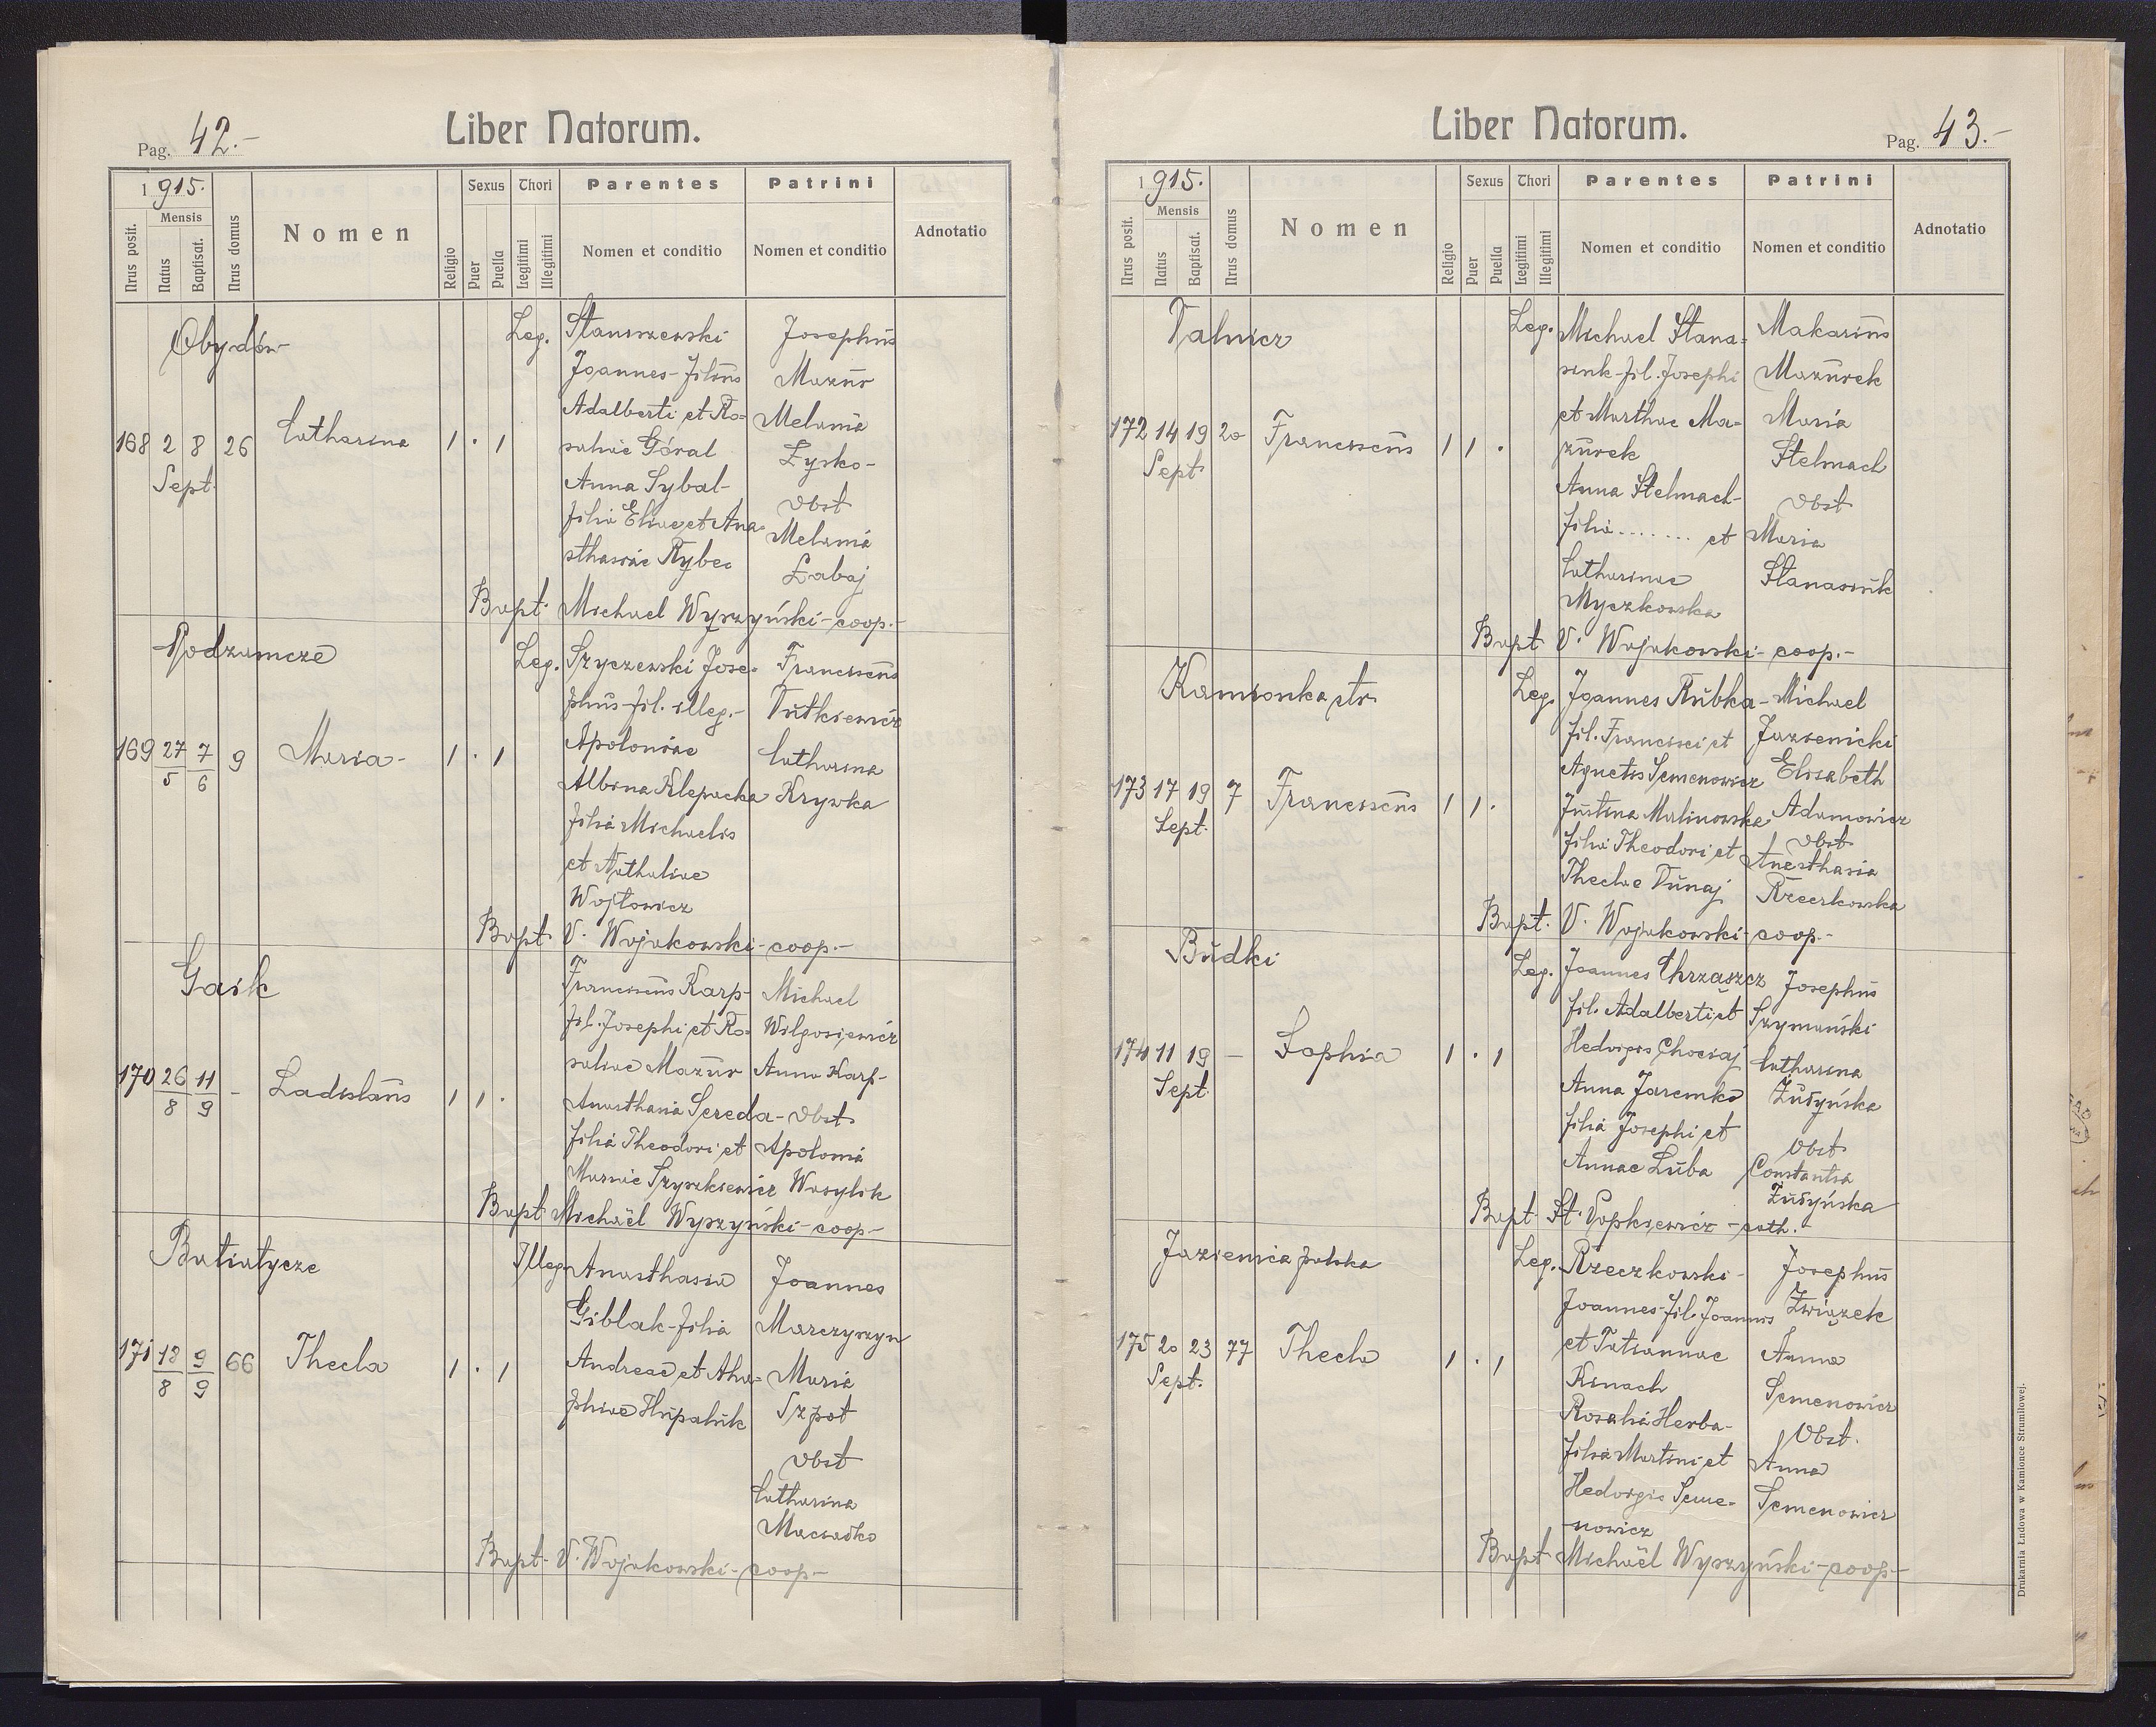 Liber Natorum.
Pag. 42.-
1915.
Sexus Thori Parentes Patrini
Mensis
Nrus posit. Natus Baptisat. Nrus domus Nomen Religio Puer Puella Legitimi Illegitimi Nomen et conditio Nomen et conditio Adnotatio
Obydów Leg. Staniszewski Josephus
Joannes-filius Mazur
Adalberti et Ro- Melania
168 2 8 26 Catharina 1 . 1 saliae Góral Zysko-
Sept. Anna Sybal- obst
filia Eliae et Ana- Melania
sthasiae Rybec Zabaj
Bapt. Michael Wyszyński-coop.-
Podzamcze Leg. Szyczewski Jose- Franciscus
phus-fil. illeg.- Dutkiewicz
169 27/5 7/6 9 Maria- 1 . 1 Apoloniae Catharina
Albina Klepacka Krywka
filia Michaelis
et Nathaliae
Wojtowicz
Bapt. V. Wojakowski-coop.-
Gaik Franciscus Karp- Michael
fil. Josephi et Ro- Wilgosiewicz
saliae Mazur Anna Karp-
170 26/8 11/9 - Ladislaus 1 1 . Anasthasia Sereda- obst.
filia Theodori et Apolonia
Mariae Szyszkiewicz Wasylik
Bapt Michaël Wyszyński-coop-
Batiatycze Illeg. Anasthasia Joannes
Giblak-filia Marczyszyn
171 18/8 9/9 66 Thecla 1 . 1 Andreae et Aha- Maria
phiae Hupalnik Szpot
obst
Catharina
Maciaŭko
Bapt. V. Wojakowski-coop-
Liber Natorum.
Pag. 43.-
1915.
Sexus Thori Parentes Patrini
Mensis
Nrus posit. Natus Baptisat. Nrus domus Nomen Religio Puer Puella Legitimi Illegitimi Nomen et conditio Nomen et conditio Adnotatio
Dalnicz Leg. Michael Stana- Makarius
siuk-fil. Josephi Mazurek
172 14 19 20 Franciscus 1 1 . et Marthae Ma- Maria
Sept. zurek Stelmach
Anna Stelmach- obst
filia ........ et Maria
Catharinae Stanasiuk
Myczkowska
Bapt V. Wojakowski-coop.-
Kamionka str. Leg. Joannes Rubka- Michael
fil. Francisci et Jazienicki
Agnetis Semenowicz Elisabeth
173 17 19 7 Franciscus 1 1 . Justina Malinowska Adamowicz
Sept. filia Theodori et obst.
Theclae Dunaj Anasthasia
Rzeczkowska
Bapt. V. Wojakowski-coop.-
Budki Leg. Joannes Chrzaszcz Josephus
fil. Adalberti et Szymański
174 11 19 - Sophia 1 . 1 Hedvigis Chociaj Catharina
Sept. Anna Jaremko Żużyńska
filia Josephi et obst.
Annae Luba Constantia
Żużyńska
Bapt St. Popkiewicz-cath.
Jazienica polska Leg. Rzeczkowski- Josephus
Joannes-fil. Joannis Związek
175 20 23 77 Thecla 1 . 1 et Tatiannae Anna
Sept. Kinach Semenowicz
Rosalia Herba- Obst.
filia Martini et Anna
Hedvigis Seme- Semenowicz
-nowicz
Bapt Michaël Wyszyński-coop-
Drukarnia Ludowa w Kamionce Strumiłowej.